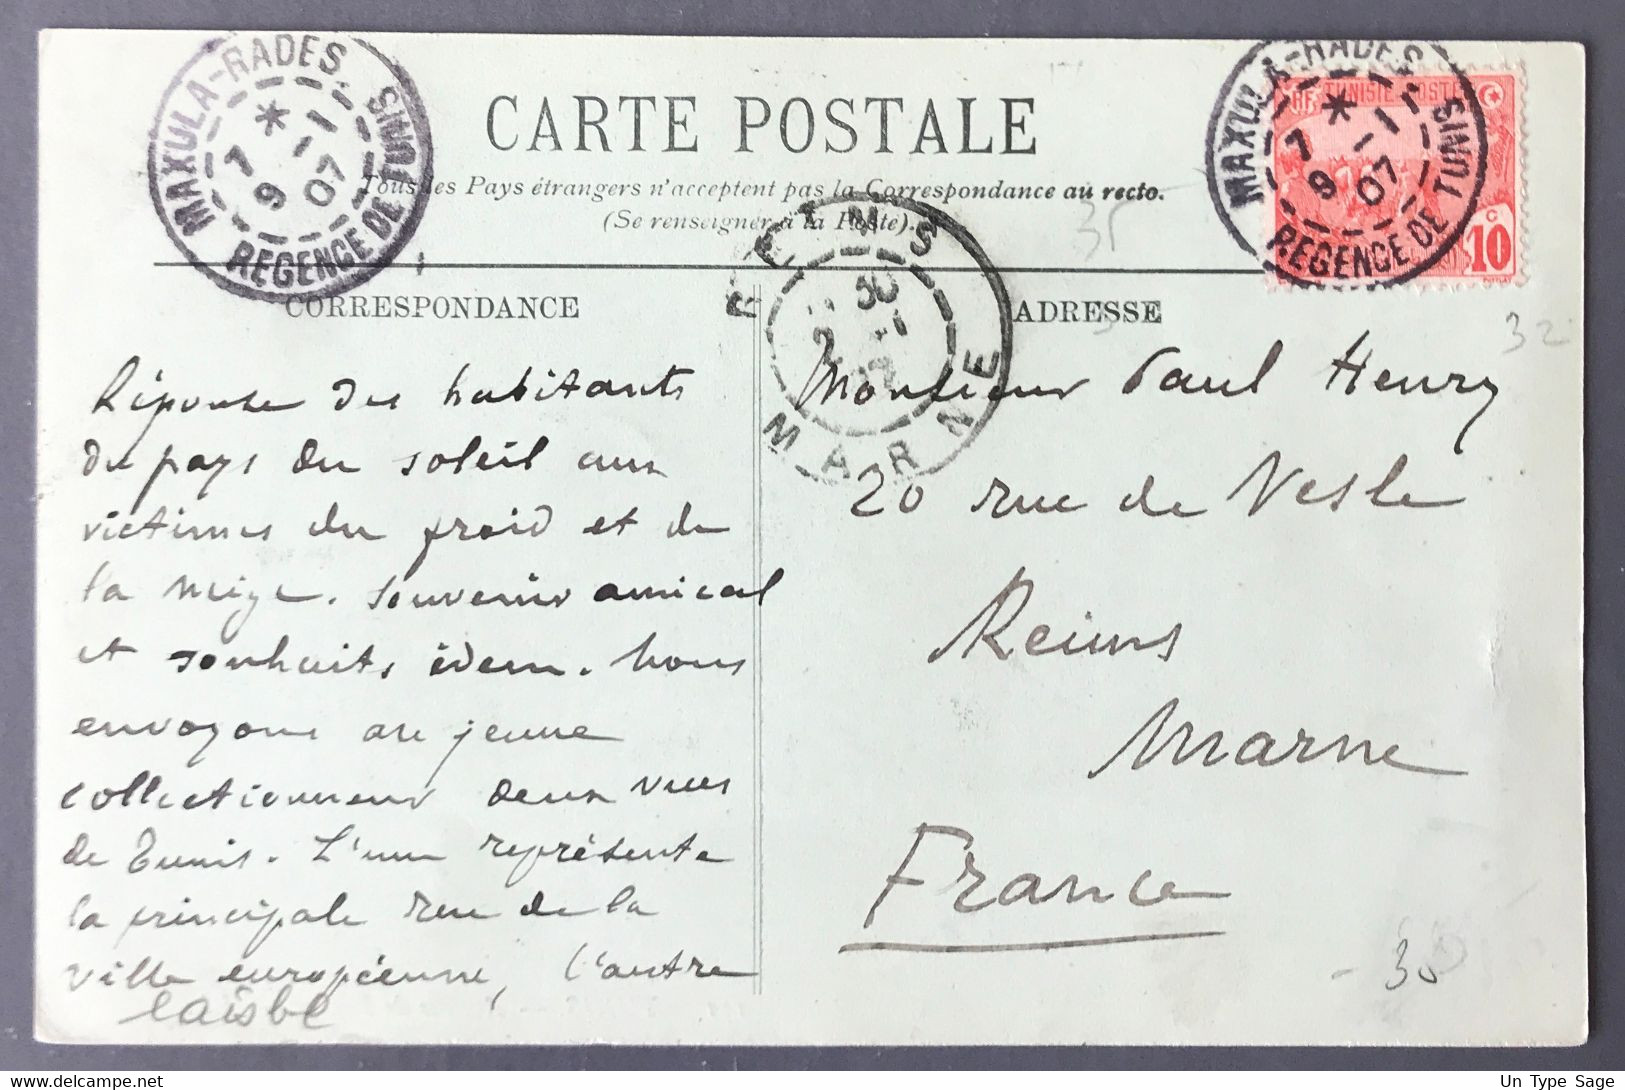 MAXULA-RADES
7 * -1
9 07
REGENCE DE TUNIS
MAXULA-RADES
7 * -1
9 07
REGENCE DE TUNIS
RF TUNISIE POSTES
10 c
CARTE POSTALE
Tous les Pays étrangers n'acceptent pas la Correspondance au recto.
(Se renseigner à la Poste).
35
REIMS
MARNE
CORRESPONDANCE
ADRESSE
32
Réponse des habitants
du pays du soleil aux
victimes du froid et de
la neige. Souvenir amical
et souhaits idem. Nous
envoyons au jeune
collectionneur deux vues
de Tunis. L'une représente
la principale rue de la
ville européenne, l'autre
Monsieur Paul Henry
20 rue de Vesle
Reims
Marne
France
30
Un Type Sage